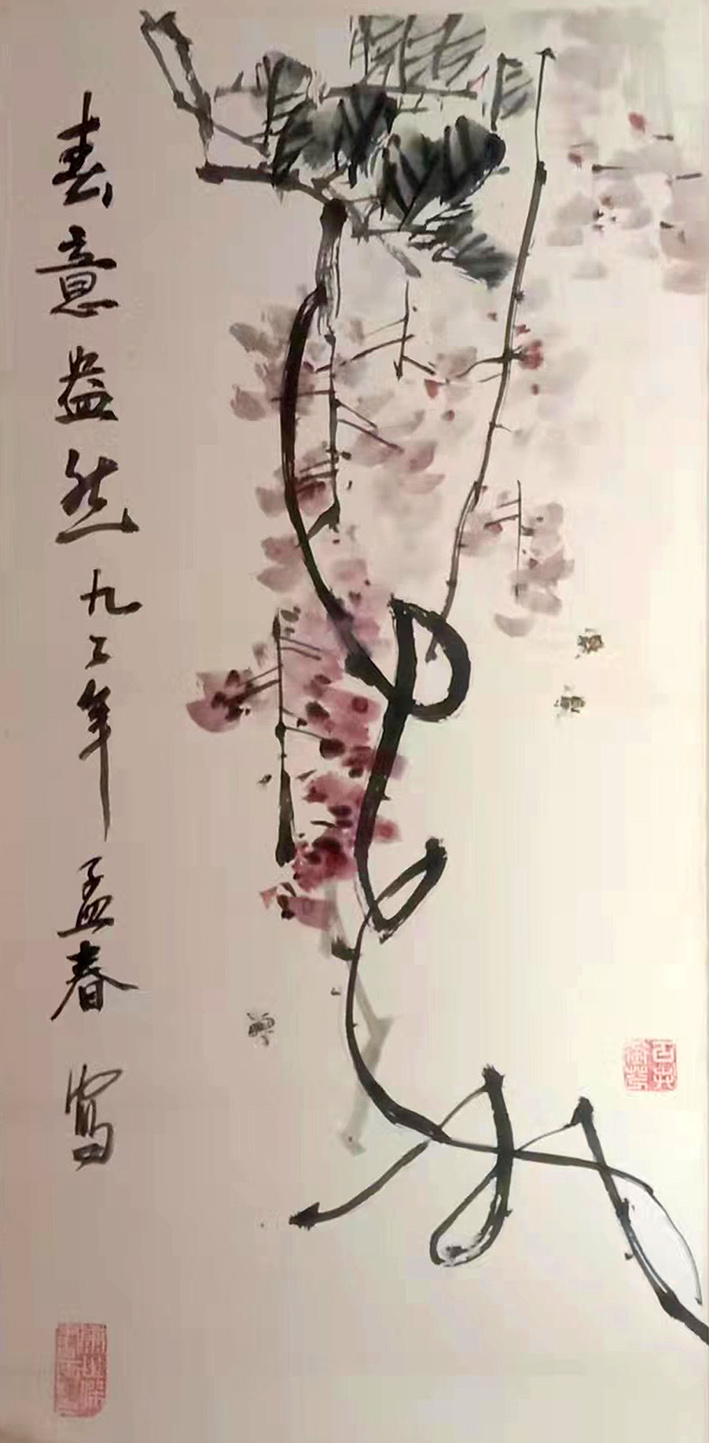 春意盎然九二年孟春 写